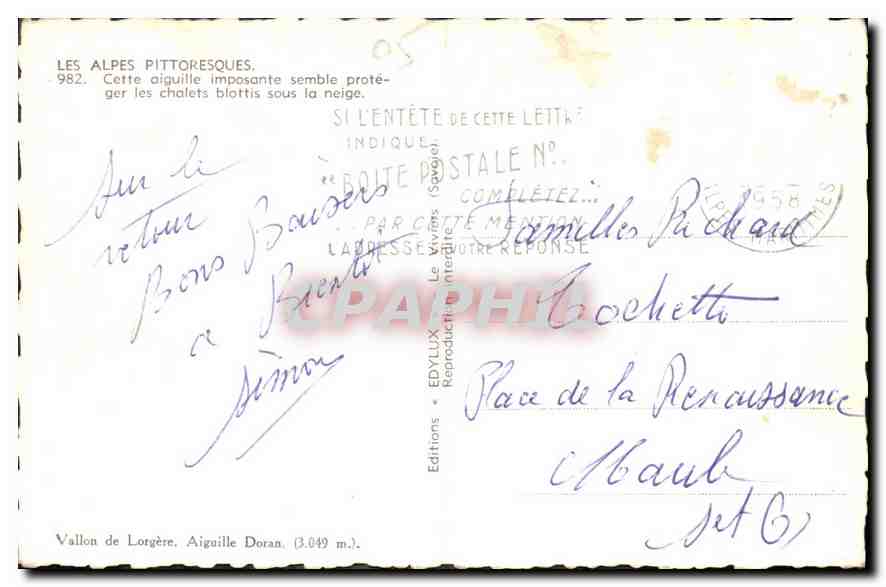 LES ALPES PITTORESQUES.
982. Cette aiguille imposante semble proté-
ger les chalets blottis sous la neige.
SI L'ENTÊTE DE CETTE LETTRE
INDIQUE
"BOITE POSTALE No..
COMPLÉTEZ...
...PAR CETTE MENTION
L'ADRESSE VOTRE RÉPONSE
1958
MARITIMES
Sur le
retour
Bons Baisers
a Bientôt
Simon
Editions * EDYLUX * Le Viviers (Savoie).
Reproduction Interdite
Familles Richard
Cochette
Place de la Renaissance
Maule
S et O
CPAPHIL
Vallon de Lorgère. Aiguille Doran. (3.049 m.).